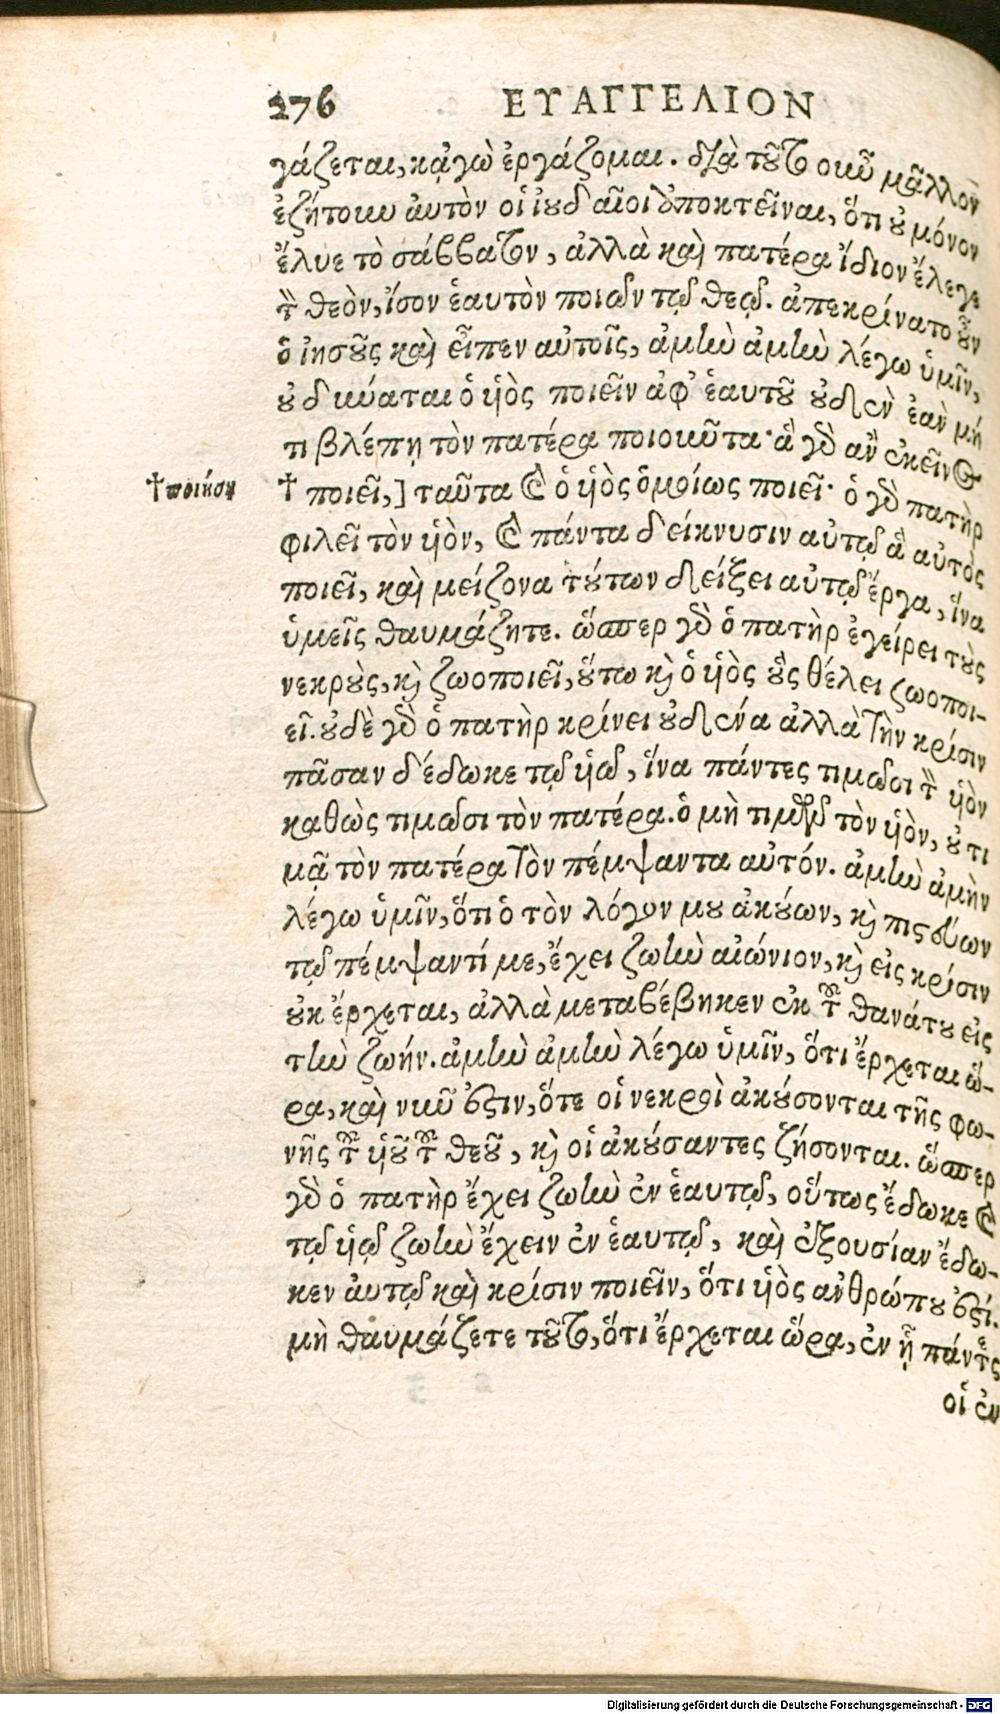 276 ΕΥΑΓΓΕΛΙΟΝ
γάζεται, κᾀγὼ ἐργάζομαι. διὰ τοῦτο οὖν μᾶλλον
ἐζήτουν ἀυτὸν οἱ ἰουδαῖοι ἀποκτεῖναι, ὅτι οὐ μόνον
ἔλυε τὸ σάββατον, ἀλλὰ καὶ πατέρα ἴδιον ἔλεγε
τὸν θεὸν, ἴσον ἑαυτὸν ποιῶν τῷ θεῷ. ἀπεκρίνατο οὖν
ὁ ἰησοῦς καὶ εἶπεν αὐτοῖς, ἀμὴν ἀμὴν λέγω ὑμῖν,
οὐ δύναται ὁ ὑὸς ποιεῖν ἀφ' ἑαυτοῦ οὐδὲν ἐαν μή
τι βλέπῃ τὸν πατέρα ποιοῦντα· ἃ γὰρ ἂν ἐκεῖνος
†ποιήσῃ
† ποιεῖ,] ταῦτα καὶ ὁ ὑὸς ὁμοίως ποιεῖ· ὁ γὰρ πατὴρ
φιλεῖ τὸν ὑὸν, καὶ πάντα δείκνυσιν αὐτῷ ἃ αὐτὸς
ποιεῖ, καὶ μείζονα τούτων δείξει αὐτῷ ἔργα, ἵνα
ὑμεῖς θαυμάζητε. ὥσπερ γὰρ ὁ πατὴρ ἐγείρει τοὺς
νεκροὺς, καὶ ζωοποιεῖ, οὕτω καὶ ὁ ὑὸς οὓς θέλει ζωοποι-
εῖ. οὐδὲ γὰρ ὁ πατὴρ κρίνει οὐδένα ἀλλὰ τὴν κρίσιν
πᾶσαν δέδωκε τῷ ὑῷ, ἵνα πάντες τιμῶσι τὸν ὑὸν
καθὼς τιμῶσι τὸν πατέρα. ὁ μὴ τιμῶν τὸν ὑὸν, οὐ τι
μᾷ τὸν πατέρα τὸν πέμψαντα αὐτόν. ἀμὴν ἀμὴν
λέγω ὑμῖν, ὅτι ὁ τὸν λόγον μου ἀκούων, καὶ πιστεύων
τῷ πέμψαντί με, ἔχει ζωὴν αἰώνιον, καὶ εἰς κρίσιν
οὐκ ἔρχεται, ἀλλὰ μεταβέβηκεν ἐκ τοῦ θανάτου εἰς
τὴν ζωήν. ἀμὴν ἀμὴν λέγω ὑμῖν, ὅτι ἔρχεται ὥ-
ρα, καὶ νῦν ἐστιν, ὅτε οἱ νεκροὶ ἀκούσονται τῆς φω-
νῆς τοῦ ὑοῦ τοῦ θεοῦ, καὶ οἱ ἀκούσαντες ζήσονται. ὥσπερ
γὰρ ὁ πατὴρ ἔχει ζωὴν ἐν ἑαυτῷ, οὕτως ἔδωκε καὶ
τῷ ὑῷ ζωὴν ἔχειν ἐν ἑαυτῷ, καὶ ἐξουσίαν ἔδω-
κεν ἀυτῷ καὶ κρίσιν ποιεῖν, ὅτι ὑὸς ανθρώπου ἐστί.
μὴ θαυμάζετε τοῦτο, ὅτι ἔρχεται ὥρα, ἐν ᾗ πάντες
οἱ ἐν
Digitalisierung gefördert durch die Deutsche Forschungsgemeinschaft - DFG